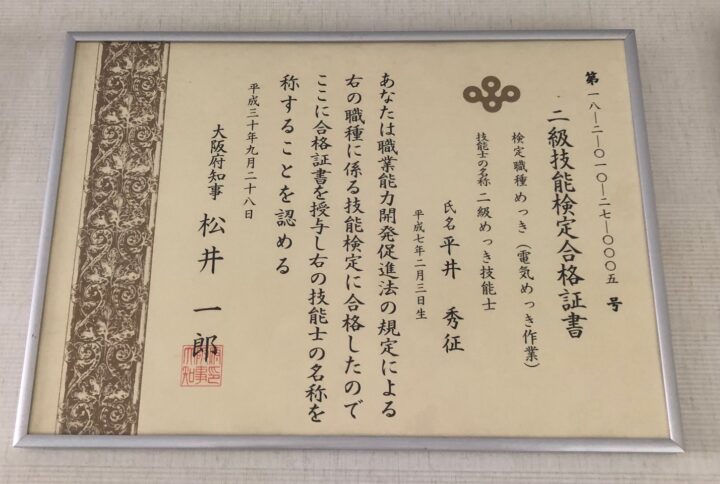 第一八―二―〇一〇―二七―〇〇〇五号
二級技能検定合格証書
検定職種 めっき（電気めっき作業）
技能士の名称 二級めっき技能士
氏名 平井 秀征
平成七年二月三日生
あなたは職業能力開発促進法の規定による
右の職種に係る技能検定に合格したので
ここに合格証書を授与し右の技能士の名称を
称することを認める
平成三十年九月二十八日
大阪府知事 松井 一郎